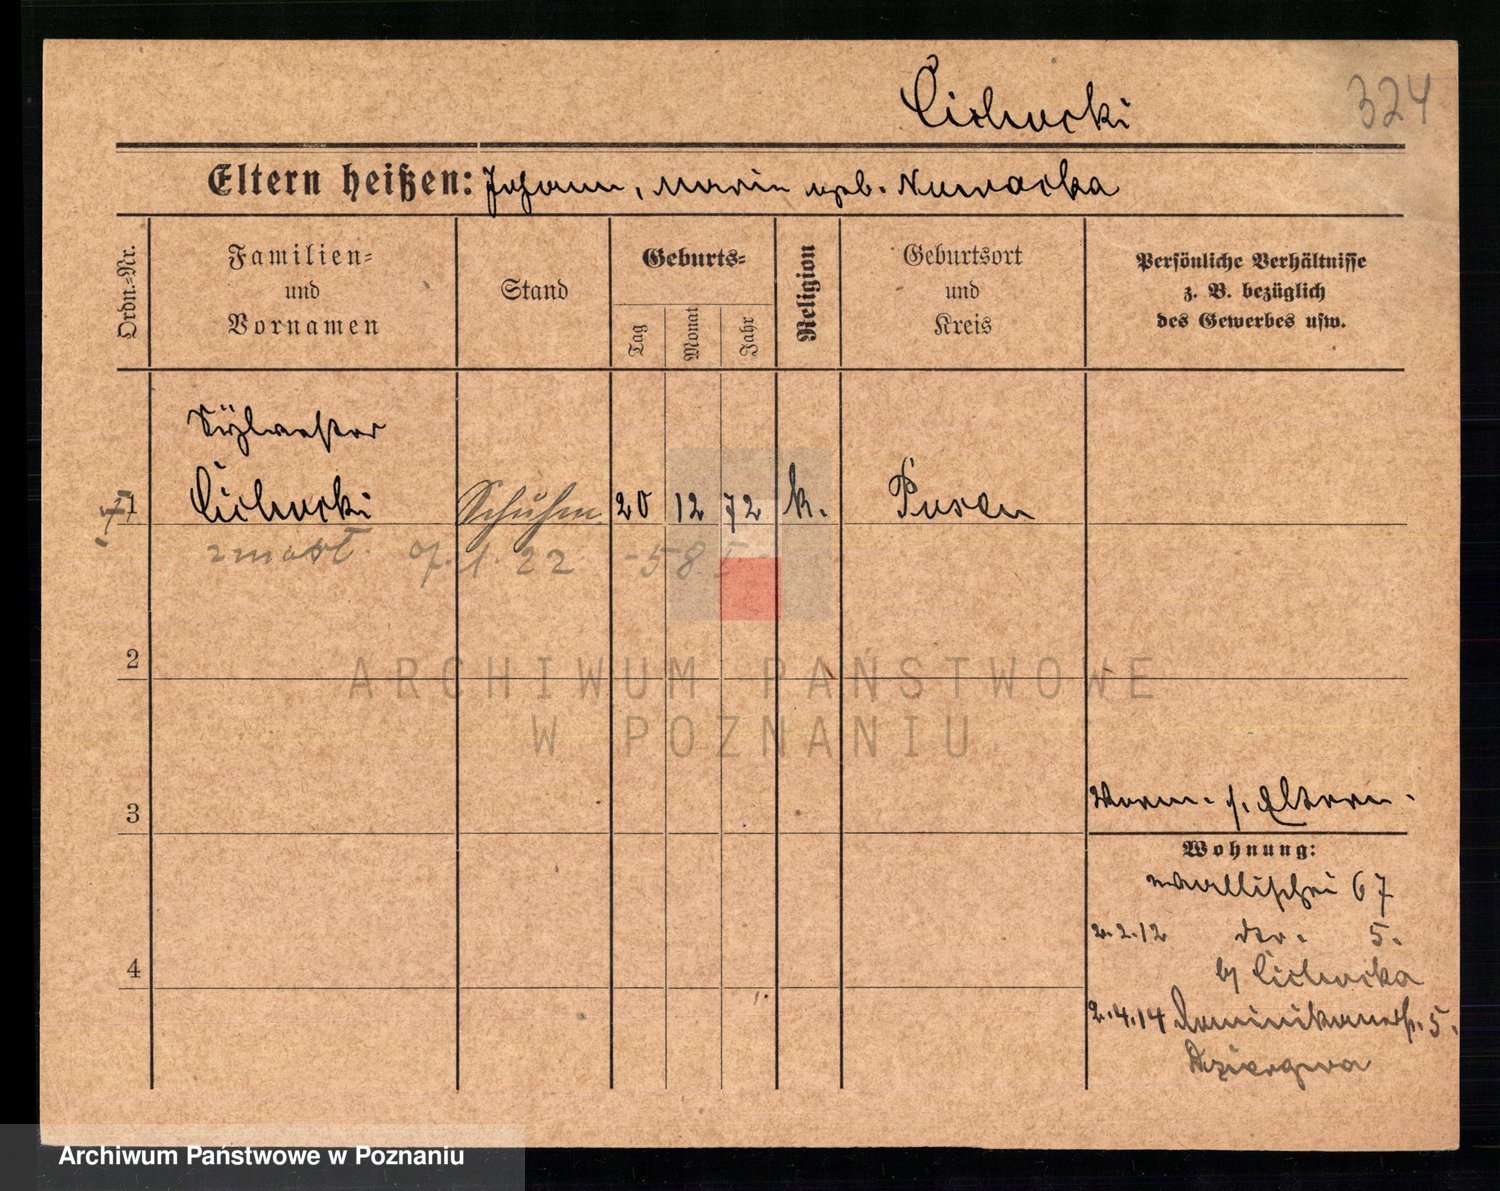 Cichocki
324
Eltern heißen: Johann, Marie geb. Nowacka
Ordn.-Nr.
Familien-
und
Vornamen
Stand
Geburts-
Tag
Monat
Jahr
Religion
Geburtsort
und
Kreis
Persönliche Verhältnisse
z. B. bezüglich
des Gewerbes usw.
Sylvester
1 Cichocki Schuhm 20 12 72 k. Posen
zmarł. 1. 22 - 58
2
ARCHIWUM PAŃSTWOWE
W POZNANIU
3
Vorm. s. Eltern.
Wohnung:
Wallischei 67
2.2.12 5.
4
b/ Cichocka
2.4.14 Dominikanerst. 5.
Archiwum Państwowe w Poznaniu